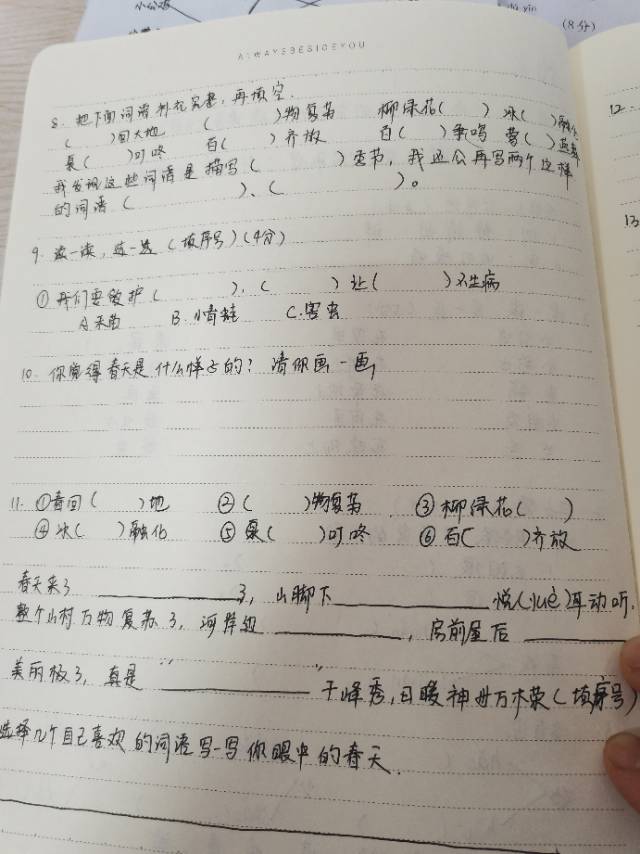 小公鸡
xīn
(8分)
ALWAYSBESIDEYOU
8. 把下面词语补充完整,再填空.
(    )回大地  (    )物复苏  柳绿花(    )  冰(    )融化
泉(    )叮咚  百(    )齐放  百(    )争鸣  莺(    )燕舞
我发现这些词语是描写(    )季节,我还会再写两个这样
的词语(    )、(    )。
9. 读一读,选一选(填序号)(4分)
①我们要保护(    ),(    )让(    )不生病
A.禾苗  B.小青蛙  C.害虫
10. 你觉得春天是什么样子的? 请你画一画
11. ①春回(    )地  ②(    )物复苏  ③柳绿花(    )
④冰(    )融化  ⑤泉(    )叮咚  ⑥百(    )齐放
春天来了____________了,山脚下____________悦(yuè)耳动听.
整个山村万物复苏了,河岸边____________,房前屋后____________
美丽极了,真是“____________”千峰秀,日暖神州万木荣(填序号)
选择几个自己喜欢的词语写一写你眼中的春天.
12.
13